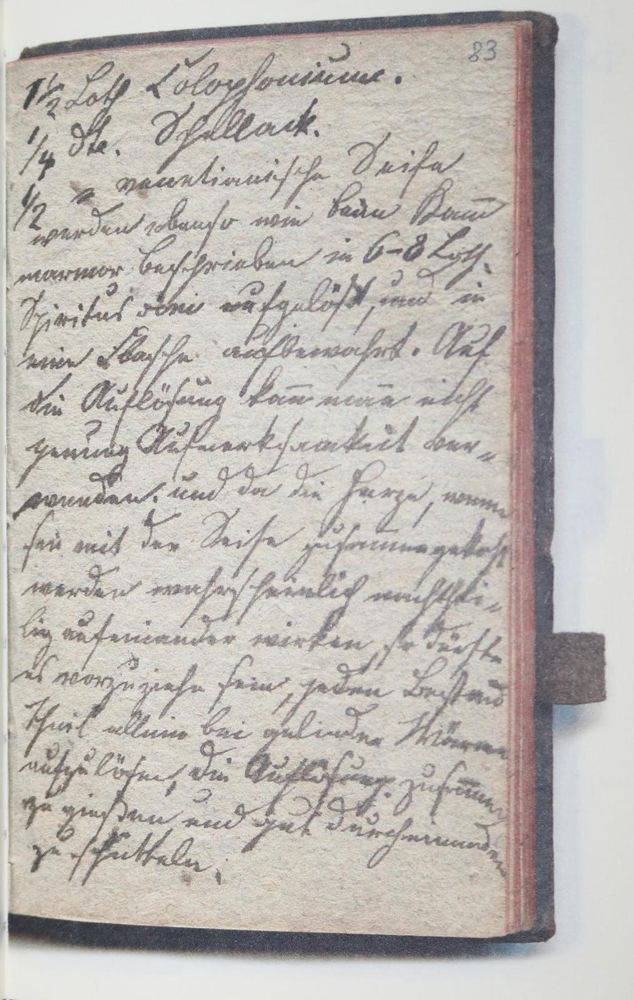 83
1½ Loth Colophonium.
¼ dto. Schellack.
½ " venetianische Seife
werden ebenso wie beim Kam̅
marmor beschrieben in 6–8 Loth
Spiritus vini aufgelöst, und in
eine Flasche aufbewahrt. Auf
die Auflösung kan̅ man nicht
genug Aufmerksamkeit ver-
wenden. und da die Harze, wenn
sie mit der Seife zusammengekocht
werden wahrscheinlich nachthei-
lig aufeinander wirken, so dürfte
es vorzuziehn sein, jeden Bestand
theil allein bei gelinder Wärme
aufzulösen, die Auflösung zusam̅en
zu gießen und gut durcheinander
zu schütteln.